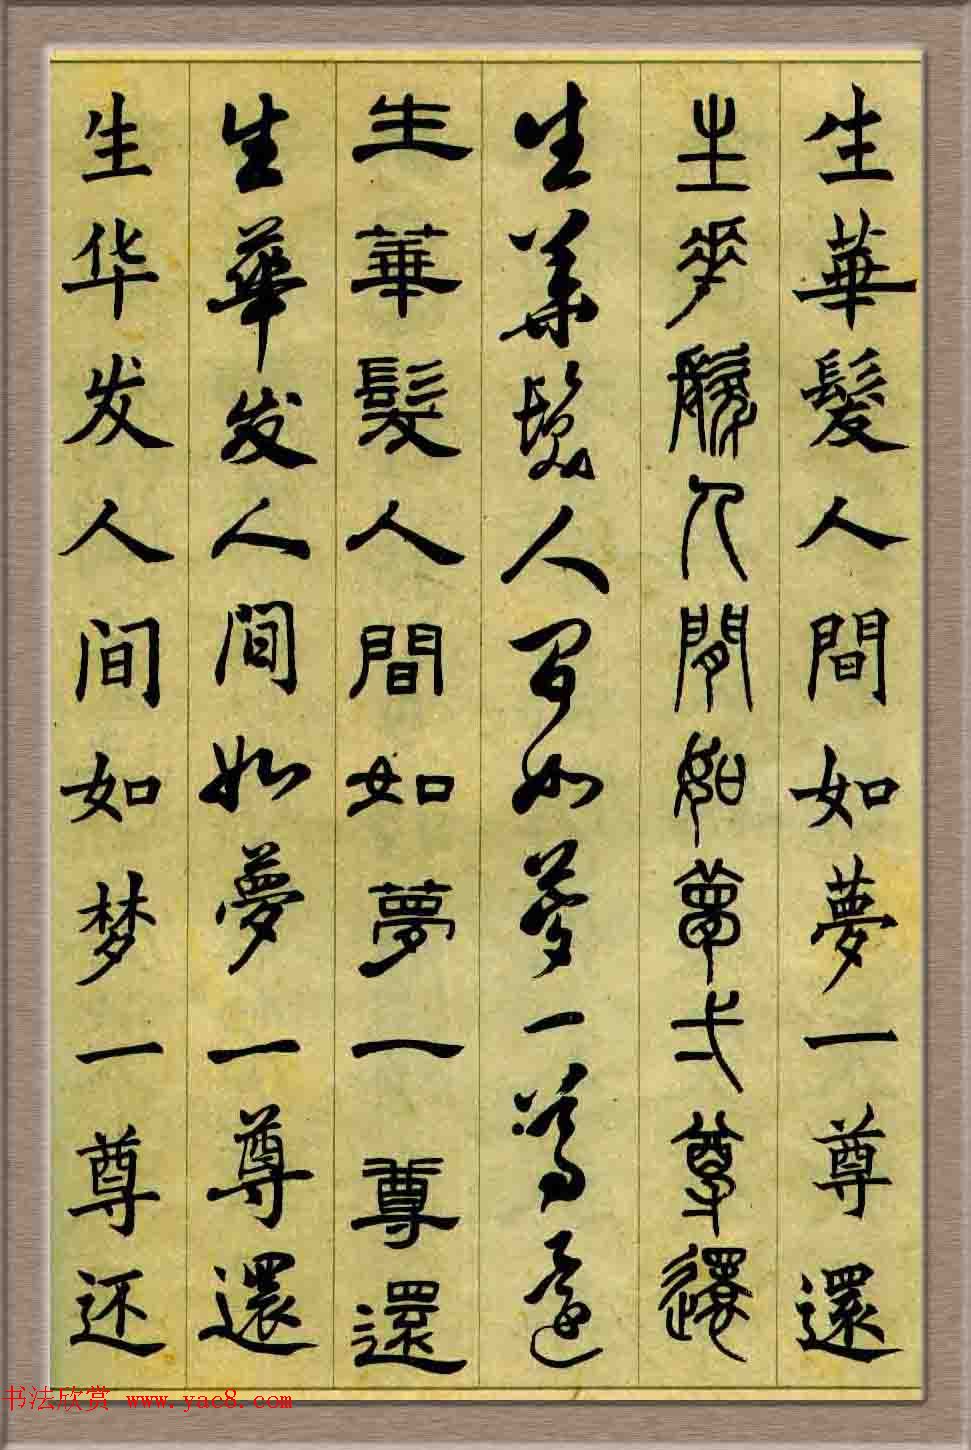 生華髮人間如夢一尊還
生華髮人間如夢一尊還
生華髮人間如夢一尊還
生華髮人間如夢一尊還
生華发人間如夢一尊還
生华发人间如梦一尊还
书法欣赏 www.yac8.com